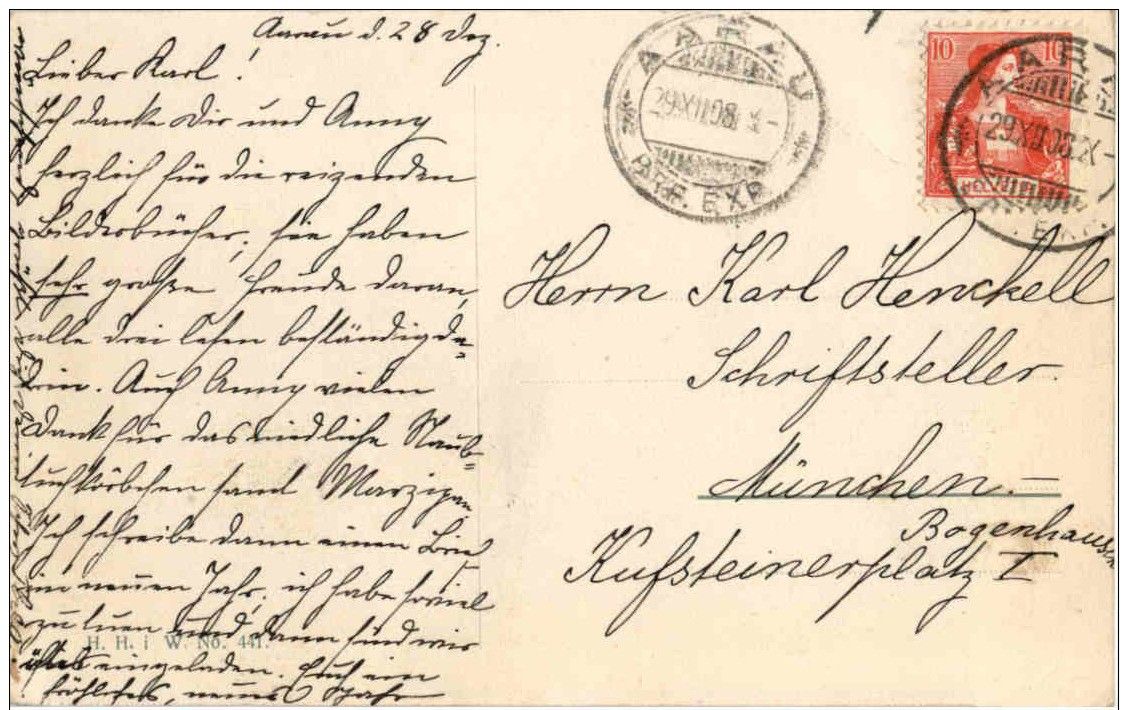 Aarau d. 28 Dez.
Lieber Karl!
Ich danke Dir und Anny
herzlich für die reizenden
Bilderbücher, sie haben
sehr große Freude daran,
alle drei lesen beständig da-
rin. Auch Anny vielen
Dank für das niedliche Staub-
tuchkörbchen samt Marzipan.
Ich schreibe dann einen Brief
im neuen Jahr, ich habe soviel
zu tuen und dann sind wir
eingeladen. Euch ein
fröhliches, neues Jahr
H. H. i W. No. 441.
AARAU
29.XII.08.X-
BRF. EXP.
10 10
AARAU
29.XII.08.X-
Herrn Karl Henckell
Schriftsteller.
München.-
Bogenhausen
Kufsteinerplatz I